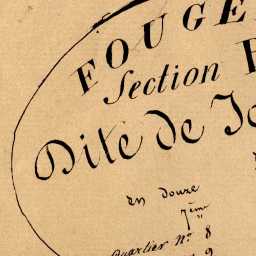 FOUGE
Section
Dite de
en douze
7ème
Quartier No. 8
9